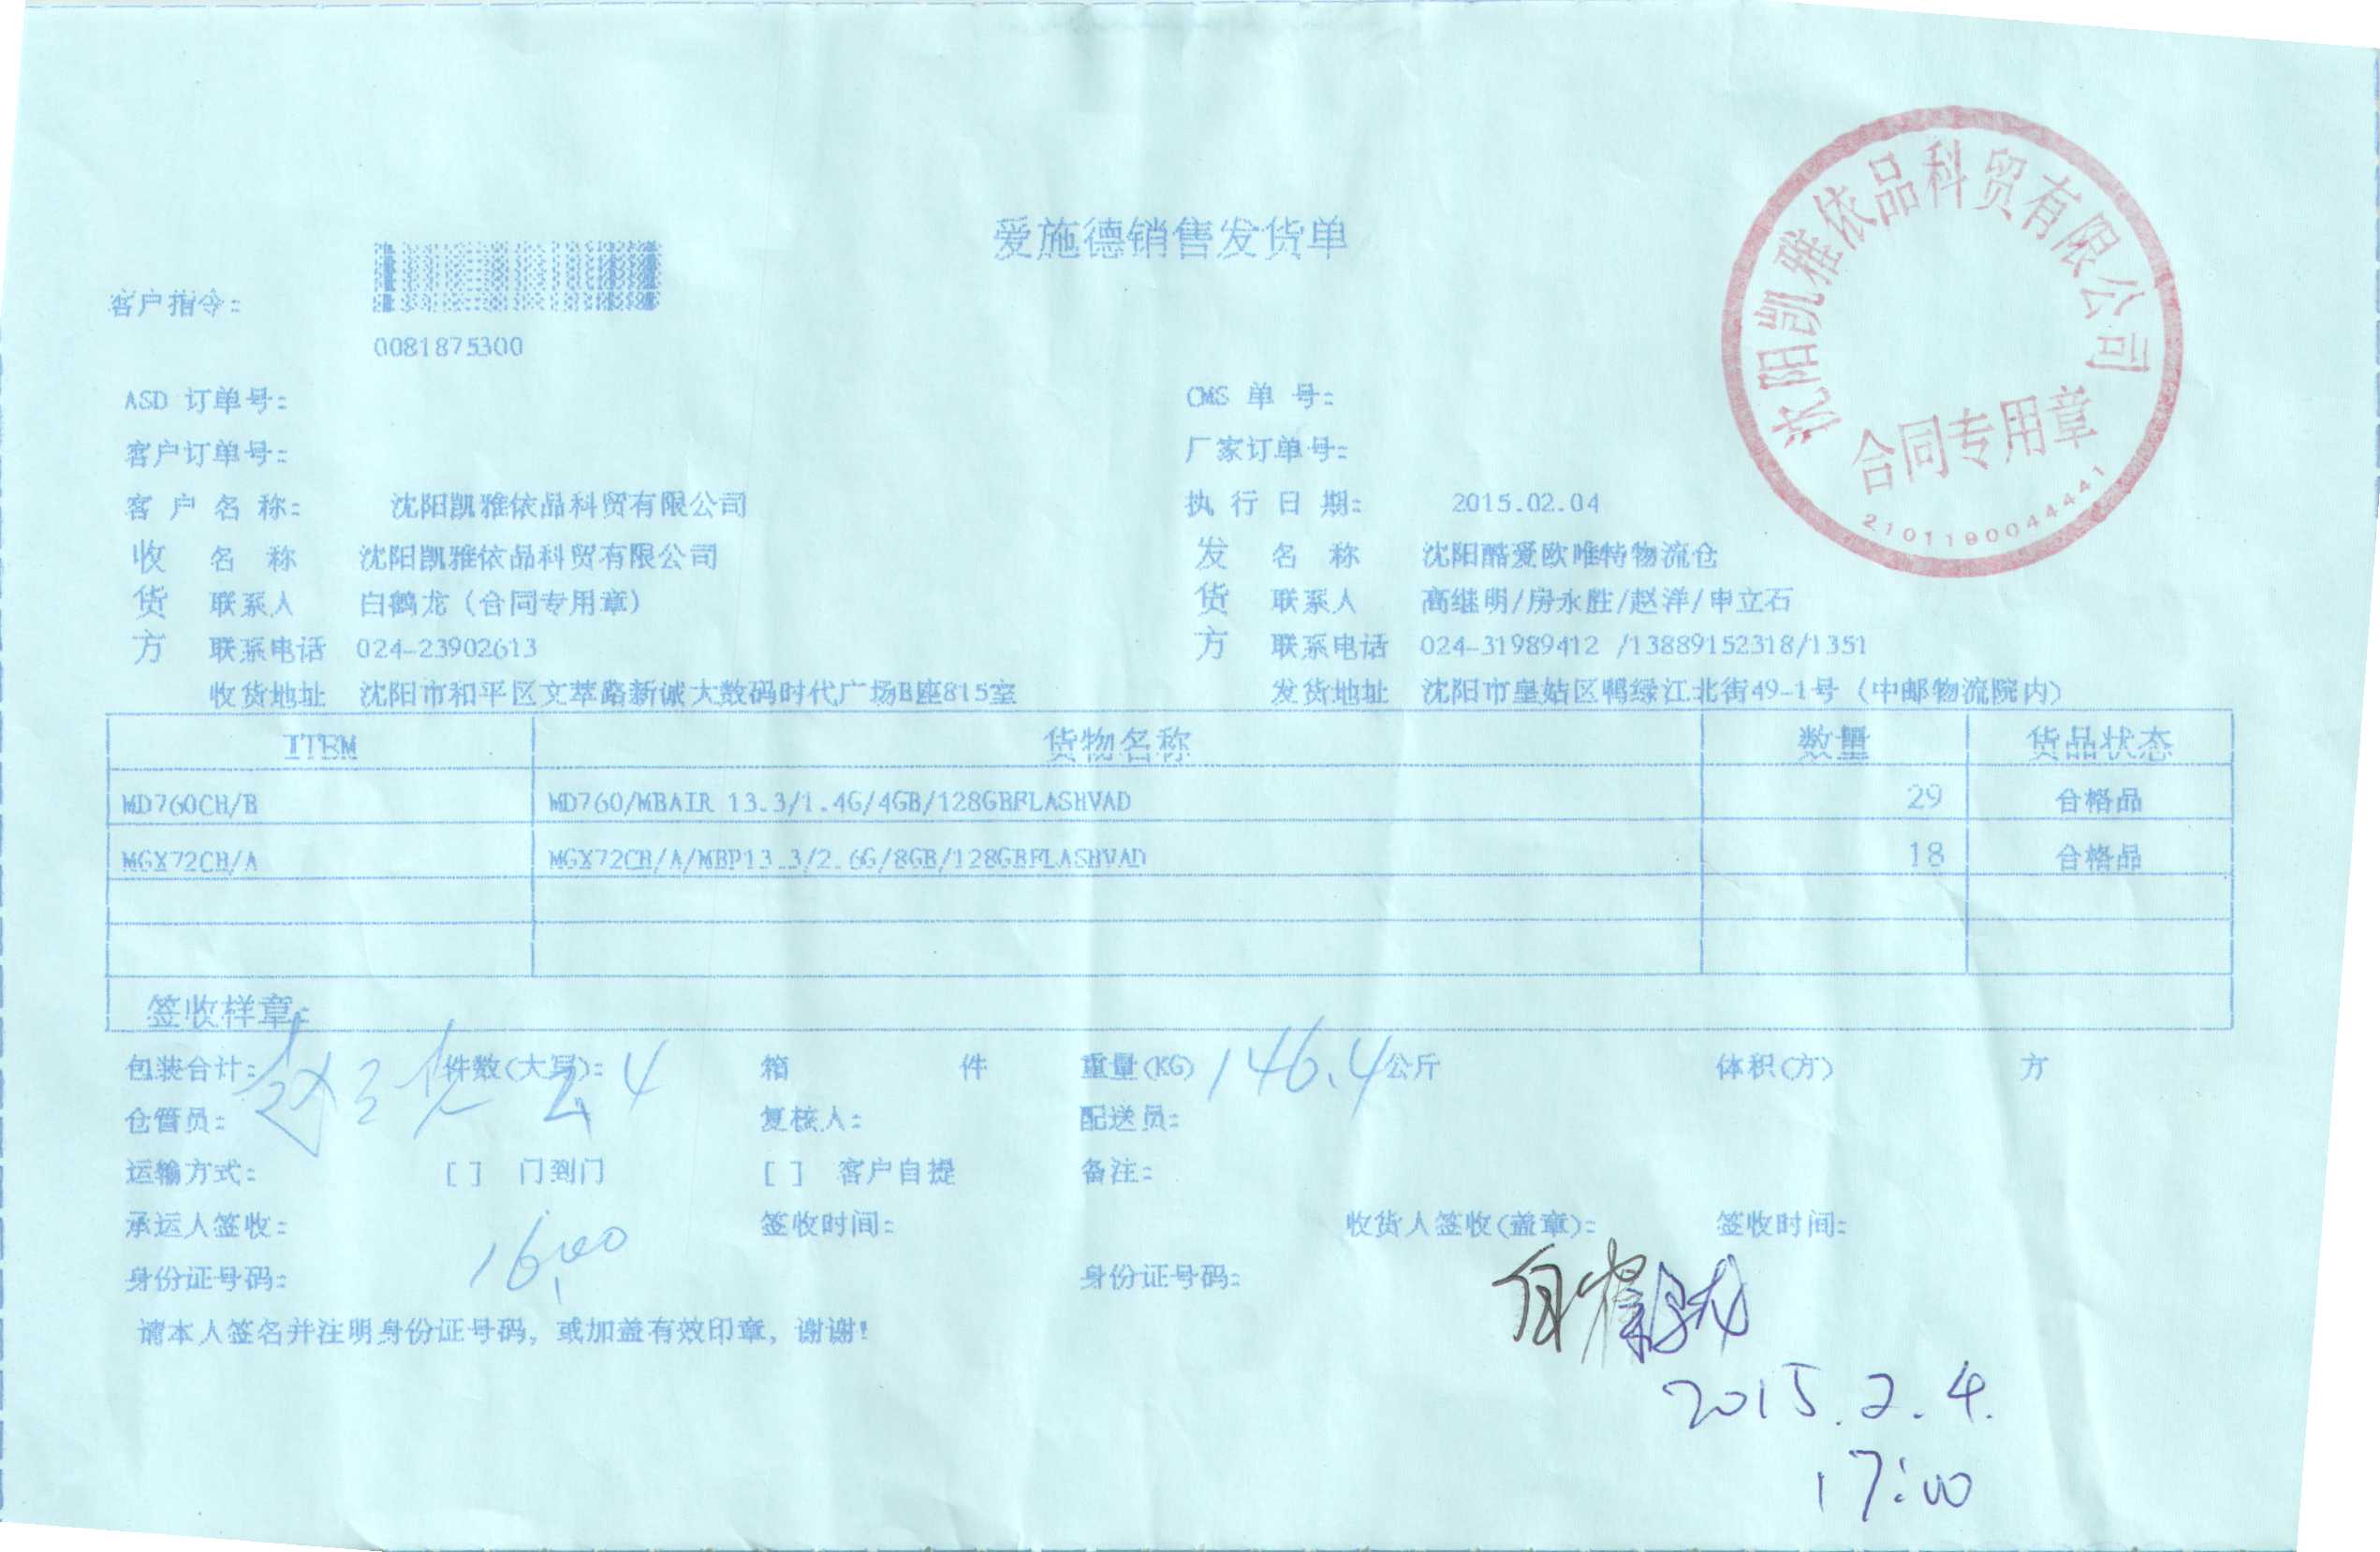 爱施德销售发货单
客户指令:
0081875300
ASD 订单号:
CMS 单 号:
客户订单号:
厂家订单号:
客 户 名 称: 沈阳凯雅依品科贸有限公司
执 行 日 期: 2015.02.04
收货方
名 称 沈阳凯雅依品科贸有限公司
联系人 白鹤龙(合同专用章)
联系电话 024-23902613
收货地址 沈阳市和平区文萃路新诚大数码时代广场B座815室
发货方
名 称 沈阳酷爱欧唯特物流仓
联系人 高继明/房永胜/赵洋/申立石
联系电话 024-31989412 /13889152318/1351
发货地址 沈阳市皇姑区鸭绿江北街49-1号(中邮物流院内)
沈阳凯雅依品科贸有限公司
合同专用章
2101190044441
ITEM 货物名称 数量 货品状态
MD760CH/B MD760/MBAIR 13.3/1.4G/4GB/128GBFLASHVAD 29 合格品
MGX72CH/A MGX72CH/A/MBP13.3/2.6G/8GB/128GBFLASHVAD 18 合格品
签收样章:
包装合计: 件数(大写): 4 箱 件 重量(KG) 146.4 公斤 体积(方) 方
仓管员: 复核人: 配送员:
运输方式: [ ] 门到门 [ ] 客户自提 备注:
承运人签收: 签收时间: 收货人签收(盖章): 签收时间:
16:00
身份证号码: 身份证号码:
请本人签名并注明身份证号码, 或加盖有效印章, 谢谢!
2015.2.4.
17:00